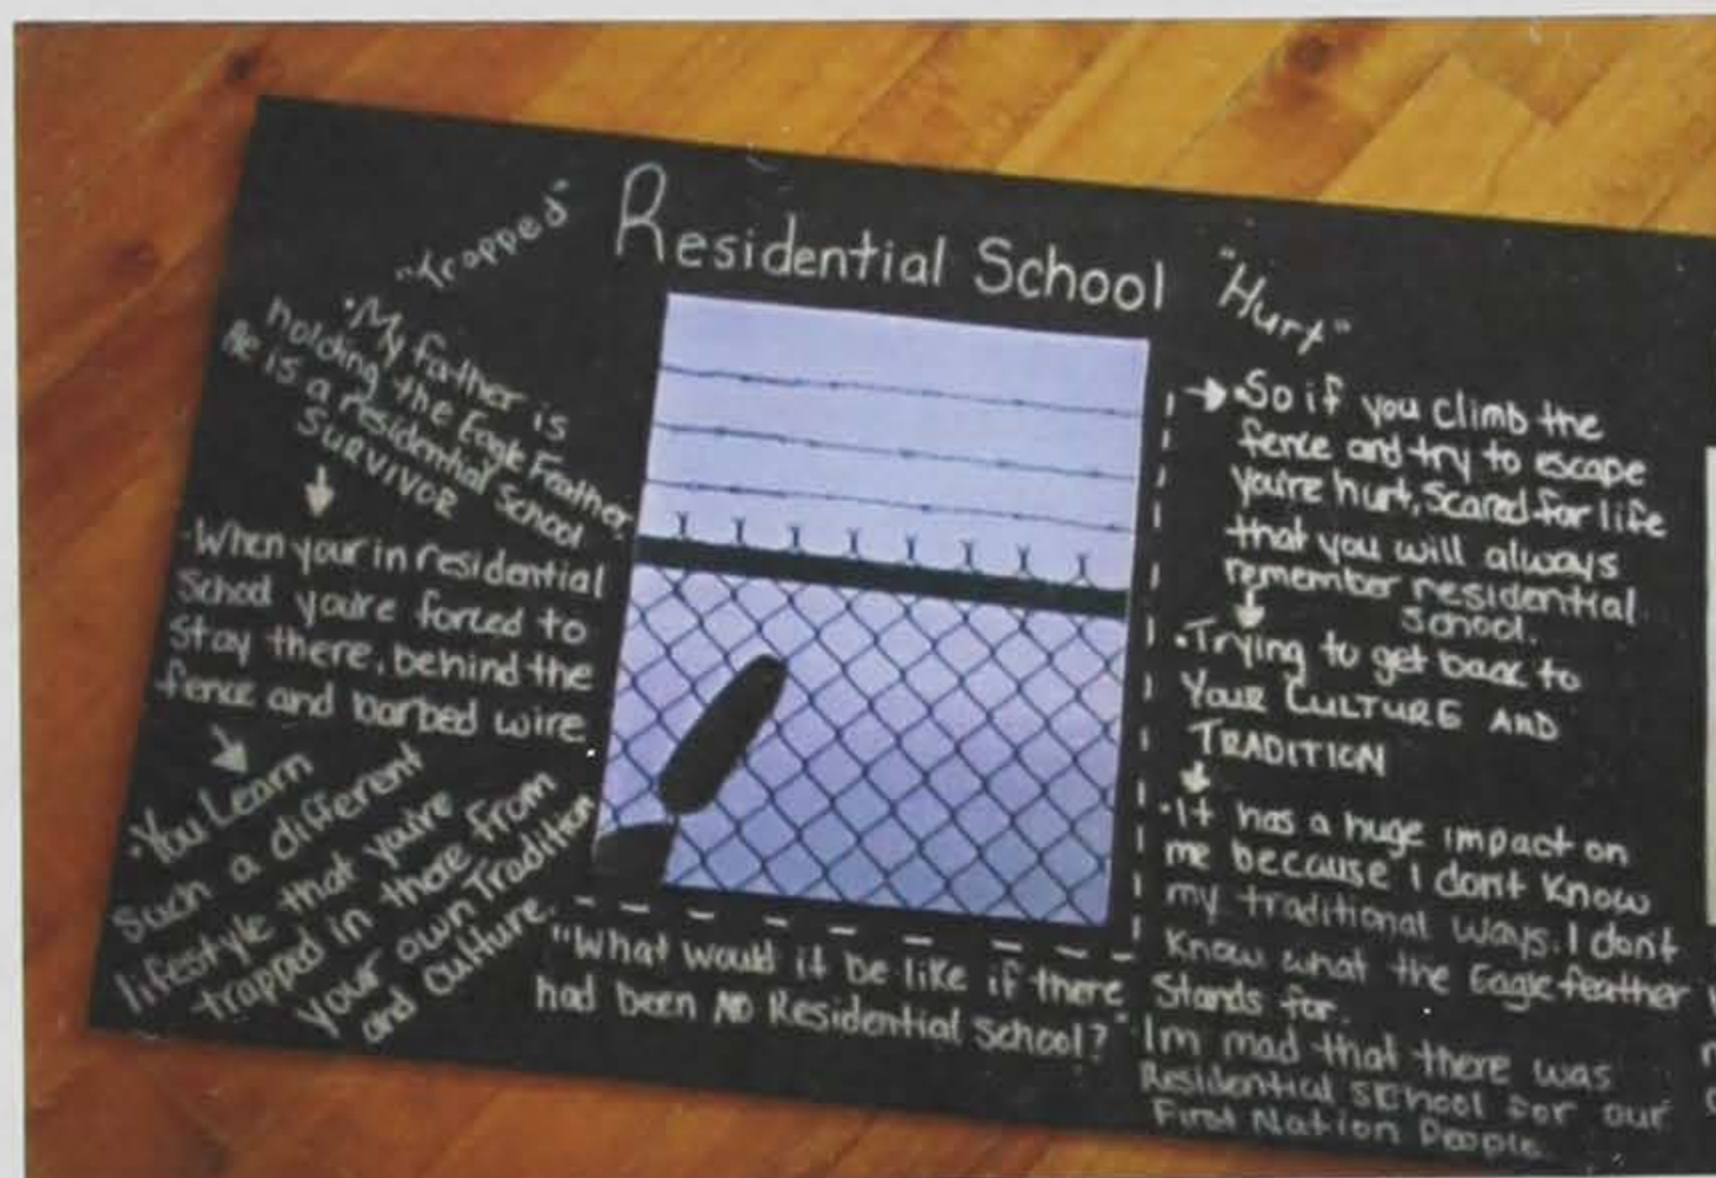 Residential School
"Trapped"
• My father is
holding the Eagle Feather.
He is a residential School
SURVIVOR
• When your in residential
School you're forced to
stay there, behind the
fence and barbed wire.
• You Learn
Such a different
lifestyle that you're
trapped in there from
your own Tradition
and culture.
"What would it be like if there
had been NO Residential School?"
"Hurt"
• So if you climb the
fence and try to escape
you're hurt, Scared for life
that you will always
remember residential
School.
• Trying to get back to
YOUR CULTURE AND
TRADITION
• It has a huge impact on
me because I dont know
my traditional ways. I dont
know what the Eagle feather
Stands for.
Im mad that there was
Residential SCHool for our
First Nation People.